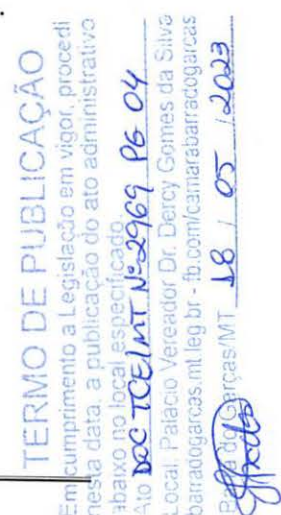 TERMO DE PUBLICAÇÃO
Em cumprimento a Legislação em vigor, procedi
nesta data, a publicação do ato administrativo
abaixo no local especificado.
Ato DOC TCE/MT Nº 2969 PG 04
Local: Palácio Vereador Dr. Dercy Gomes da Silva
barradogarcas.mt.leg.br - fb.com/camarabarradogarcas
Barra do Garças/MT 18 / 05 / 2023